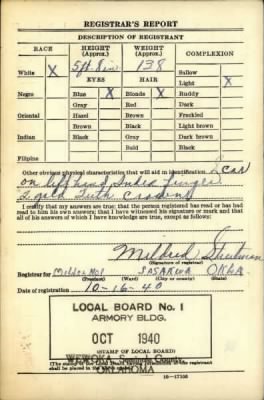 REGISTRAR'S REPORT
DESCRIPTION OF REGISTRANT
RACE HEIGHT (Approx.) WEIGHT (Approx.) COMPLEXION
White X 5ft 8in 138 Sallow
EYES HAIR Light X
Negro Blue X Blonde X Ruddy
Gray Red Dark
Oriental Hazel Brown Freckled
Brown Black Light brown
Indian Black Gray Dark brown
Bald Black
Filipino
Other obvious physical characteristics that will aid in identification Scar
on left hand Index finger
2 gold Teeth
I certify that my answers are true; that the person registered has read or has had
read to him his own answers; that I have witnessed his signature or mark and that
all of his answers of which I have knowledge are true, except as follows:
Mildred
(Signature of registrar)
Registrar for SASAKWA OKLA
(Precinct) (Ward) (City or county) (State)
Date of registration 10-16-40
LOCAL BOARD No. 1
ARMORY BLDG.
OCT 1940
(STAMP OF LOCAL BOARD)
WEWOKA, Seminole County,
OKLAHOMA
shall be placed in the
16—17105